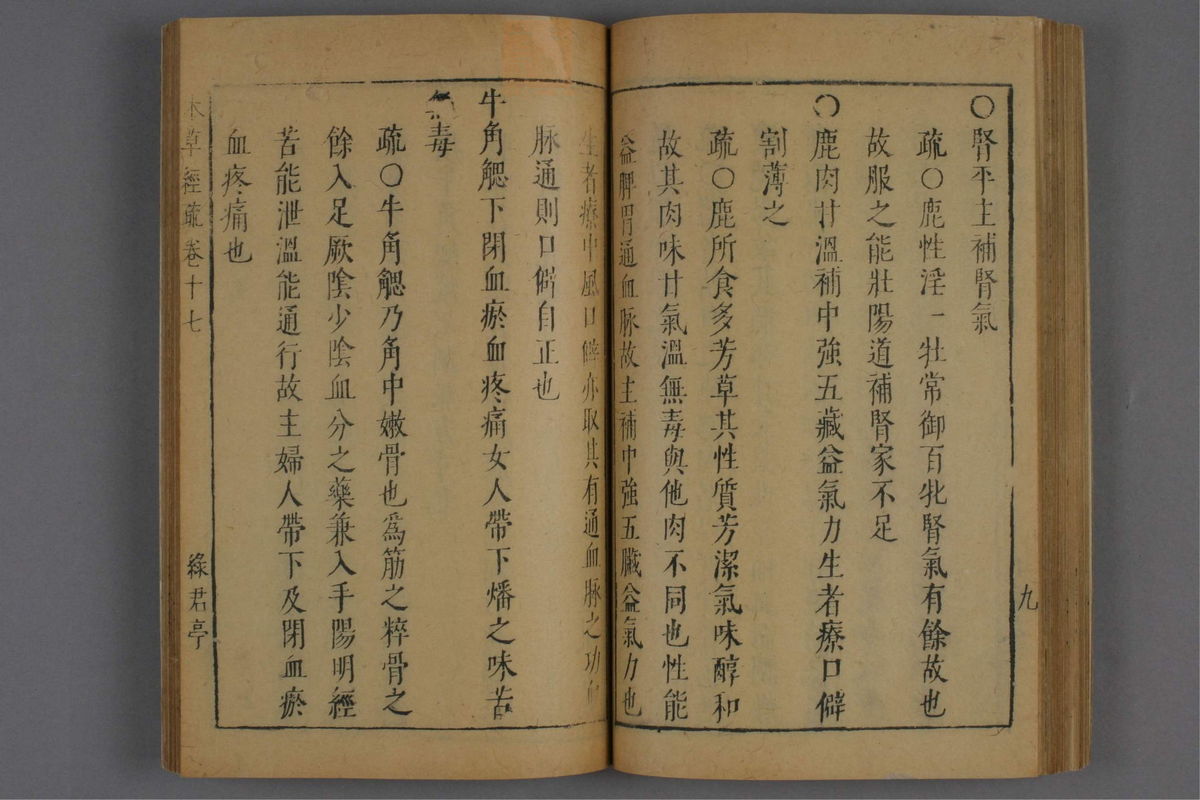 ○腎平主補腎氣
疏○鹿性淫一牡常御百牝腎氣有餘故也
故服之能壯陽道補腎家不足
○鹿肉甘溫補中強五藏益氣力生者療口僻
割薄之
疏○鹿所食多芳草其性質芳潔氣味醇和
故其肉味甘氣溫無毒與他肉不同也性能
益脾胃通血脉故主補中強五臟益氣力也
生者療中風口僻亦取其有通血脉之功血
脉通則口僻自正也
牛角䚡下閉血瘀血疼痛女人帶下燔之味苦
無毒
疏○牛角䚡乃角中嫩骨也為筋之粹骨之
餘入足厥陰少陰血分之藥兼入手陽明經
苦能泄溫能通行故主婦人帶下及閉血瘀
血疼痛也
本草經疏卷十七
綠君亭
九